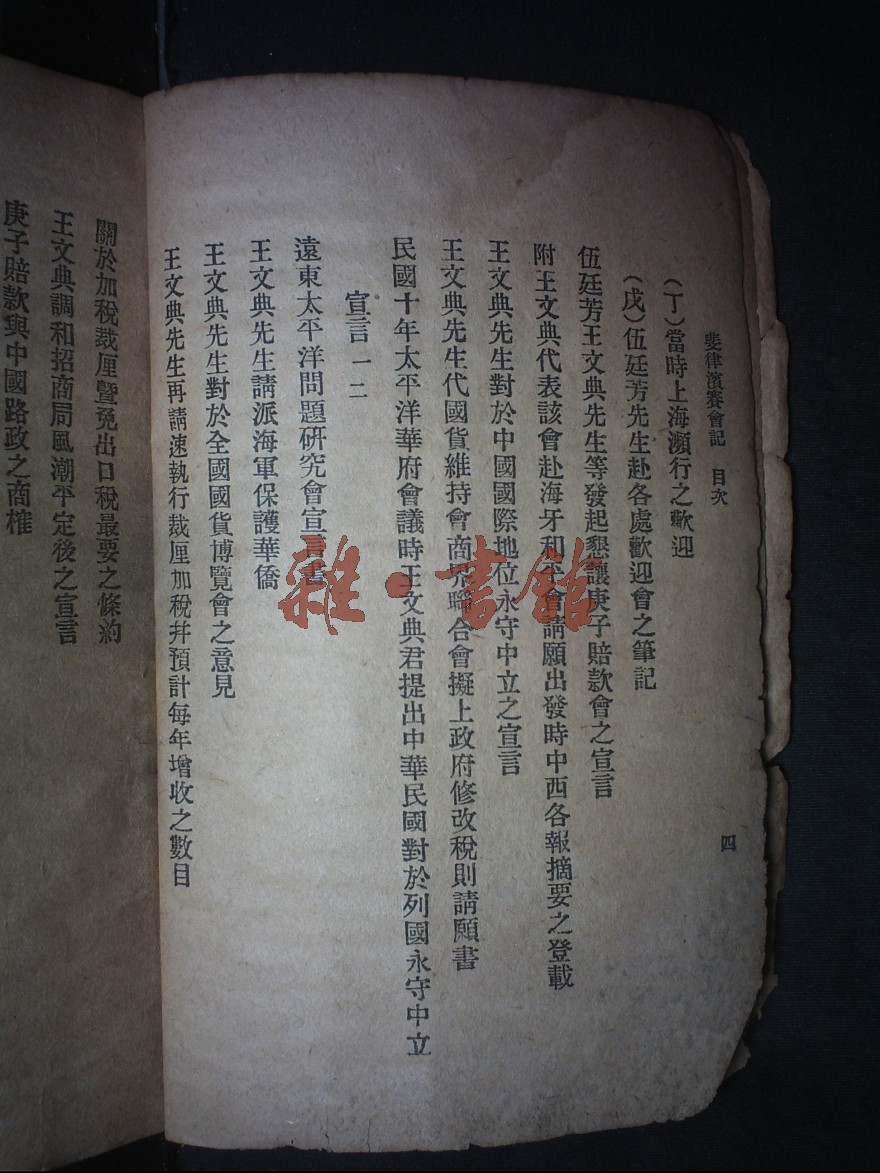 斐律濱賽會記 目次
四
(丁)當時上海瀕行之歡迎
(戊)伍廷芳先生赴各處歡迎會之筆記
伍廷芳王文典先生等發起懇讓庚子賠款會之宣言
附王文典代表該會赴海牙和平會請願出發時中西各報摘要之登載
王文典先生對於中國國際地位永守中立之宣言
王文典先生代國貨維持會商界聯合會擬上政府修改稅則請願書
民國十年太平洋華府會議時王文典君提出中華民國對於列國永守中立
宣言一二
遠東太平洋問題研究會宣言書
王文典先生請派海軍保護華僑
王文典先生對於全國國貨博覽會之意見
王文典先生再請速執行裁厘加稅并預計每年增收之數目
關於加稅裁厘暨免出口稅最要之條約
王文典調和招商局風潮平定後之宣言
庚子賠款與中國路政之商榷
雜·書館